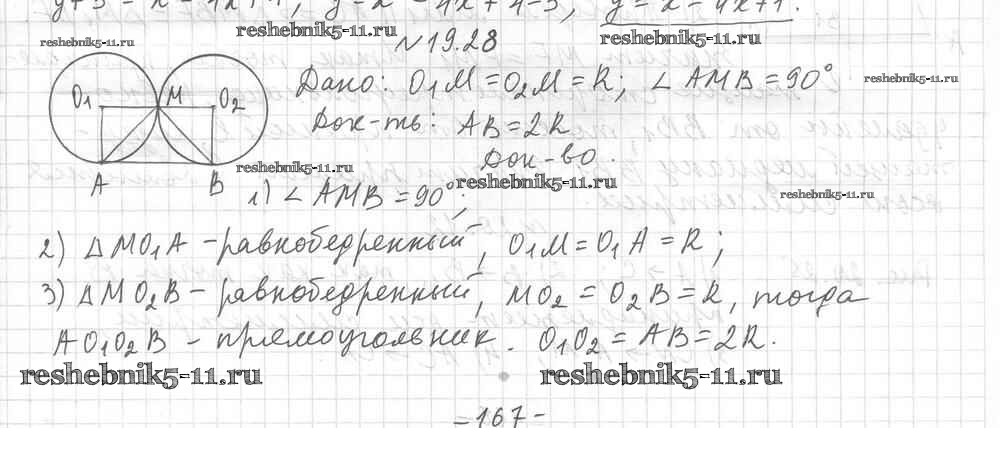 reshebnik5-11.ru
reshebnik5-11.ru
reshebnik5-11.ru
№19.28
O₁ M O₂
Дано: O₁M = O₂M = R; ∠AMB = 90°
reshebnik5-11.ru
Док-ть: AB = 2R
Док-во.
reshebnik5-11.ru
A B
reshebnik5-11.ru
1) ∠AMB = 90°;
reshebnik5-11.ru
2) △MO₁A - равнобедренный, O₁M = O₁A = R;
3) △MO₂B - равнобедренный, MO₂ = O₂B = R, тогда
AO₁O₂B - прямоугольник. O₁O₂ = AB = 2R.
reshebnik5-11.ru reshebnik5-11.ru
= 167 -